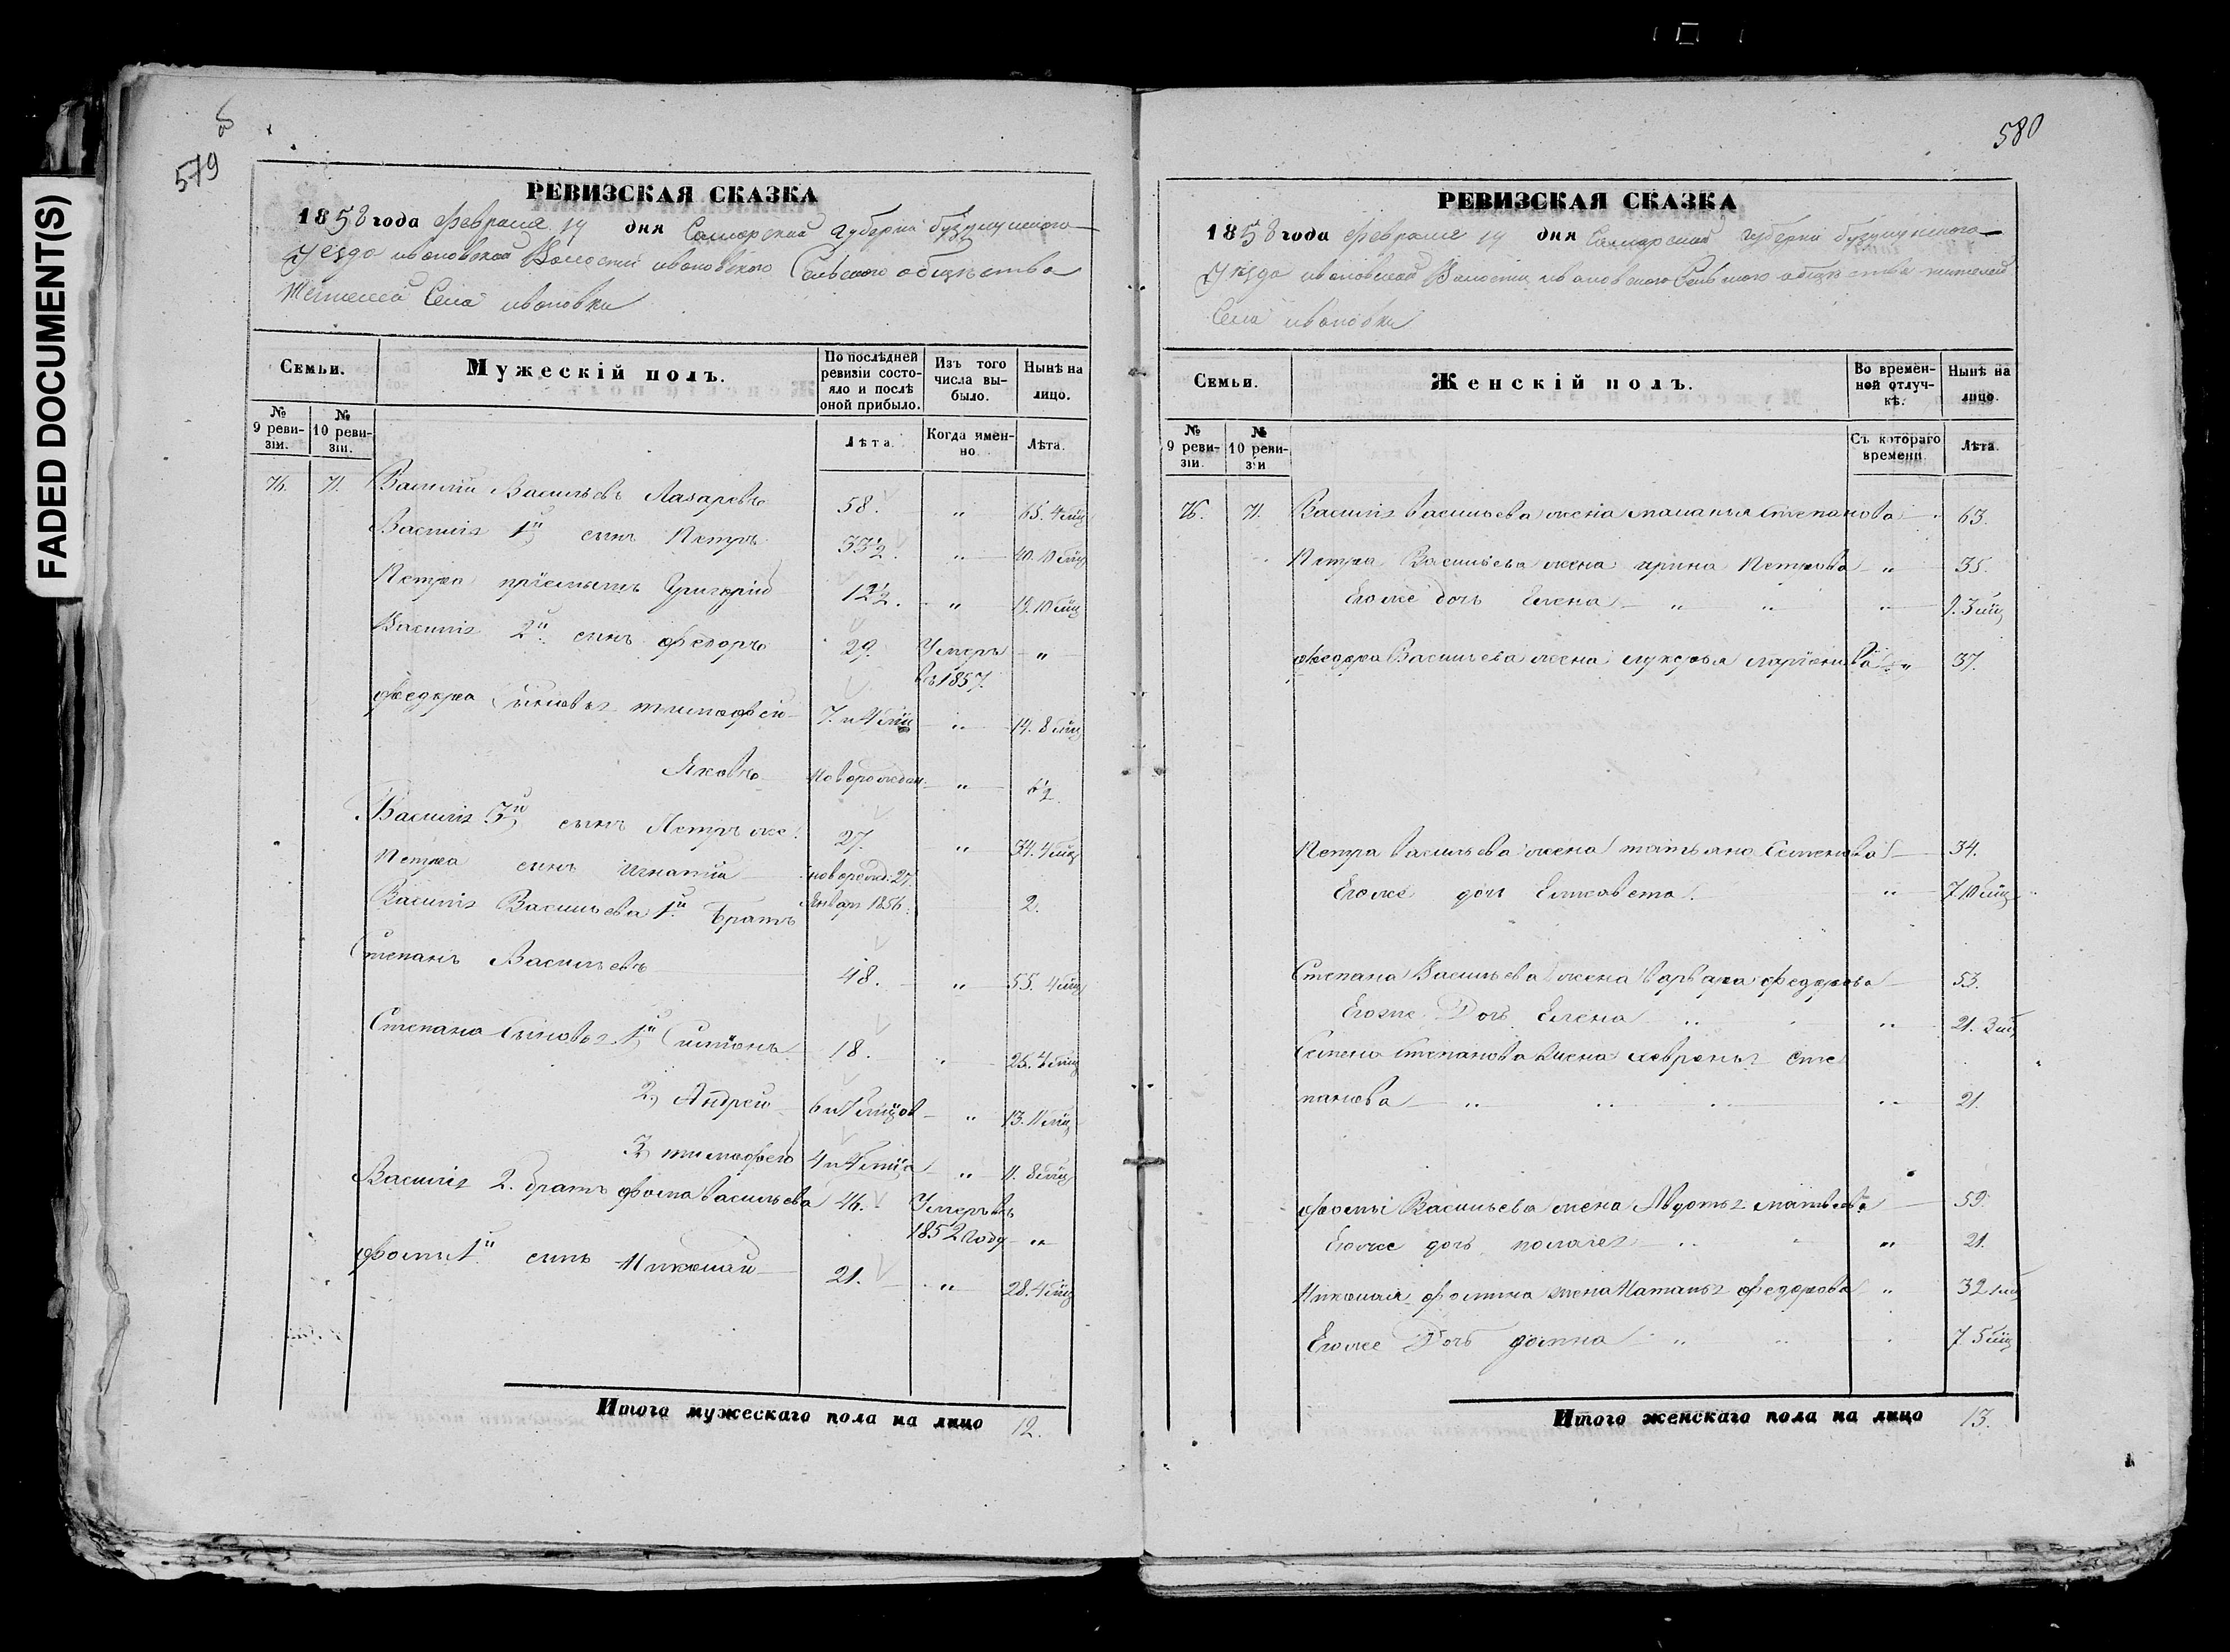 FADED DOCUMENT(S)
579
РЕВИЗСКАЯ СКАЗКА
1858 года Февраля 14 дня Самарской губерніи бузулукского
Уезда ивановской Волости ивановского Сельского общества
Жителей Села ивановки
Семьи.
Мужескій полъ.
По послѣдней
ревизіи состо-
яло и послѣ
оной прибыло.
Изъ того
числа вы-
было.
Нынѣ на
лицо.
№
9 реви-
зіи.
№
10 реви-
зіи.
Лѣта.
Когда имен-
но.
Лѣта.
76. 71. Василій Васильевъ Лазаревъ 58. „ 65. 4 мѣц
Василія 1й сынъ Петръ 33½. „ 40. 10 мѣц
Петра пріемышъ Григорій 12½. „ 19. 10 мѣц
Василія 2й сынъ Федоръ 29. Умеръ „
въ 1857.
Федора Сыновья тимофей 7. и 4 мѣц „ 14. 8 мѣц
Яковъ новорожден. „ 6½
Василія 3й сынъ Петръ же 27. „ 34. 4 мѣц
Петра сынъ игнатій новорожд: 27.
Январ 1856. 2.
Василія Васильева 1й братъ
Степанъ Васильевъ 48. „ 55. 4 мѣц
Степана Сыновья 1й Симіонъ 18. „ 25. 4 мѣц
2, Андрей 6 и 7 мѣцов „ 13. 11 мѣц
3, тимофей 4 и 4 мѣца „ 11. 8 мѣц
Василія 2. братъ фома Васильева 46. Умеръ въ
1852 году „
Фомы 1й сынъ Николай 21. „ 28. 4 мѣц
Итого мужескаго пола на лицо 12.
580
РЕВИЗСКАЯ СКАЗКА
1858 года Февраля 14 дня Самарской губерніи бузулукского
Уезда ивановской Волости ивановского Сельского общества жителей
Села ивановки
Семьи.
Женскій полъ.
Во времен-
ной отлуч-
кѣ.
Нынѣ на
лицо.
№
9 реви-
зіи.
№
10 реви-
зіи
Съ котораго
времени
Лѣта.
76. 71. Василія Васильева жена маланья степанова 63.
Петра Васильева жена ирина Петрова „ 35.
Его же доч Елена „ „ „ 9. 3 мѣц
Федора Васильева жена лукерья ларіонова „ 37.
Петра Васильева жена татьяна Семенова 34.
Его же доч Елизавета „ 7 10 мѣц
Степана Васильева жена Варвара федорова 53.
Его же Доч Елена „ „ 21. 3 мѣц
Семена степанова жена хевронья Сте
панова „ „ „ „ 21.
Фомы Васильева жена Авдотья матвѣева 59.
Его же доч „ „ 21.
Николая фомина жена Наталья федорова „ 32 1 мѣц
Его же Доч домна „ „ 7. 5 мѣц
Итого женскаго пола на лицо 13.